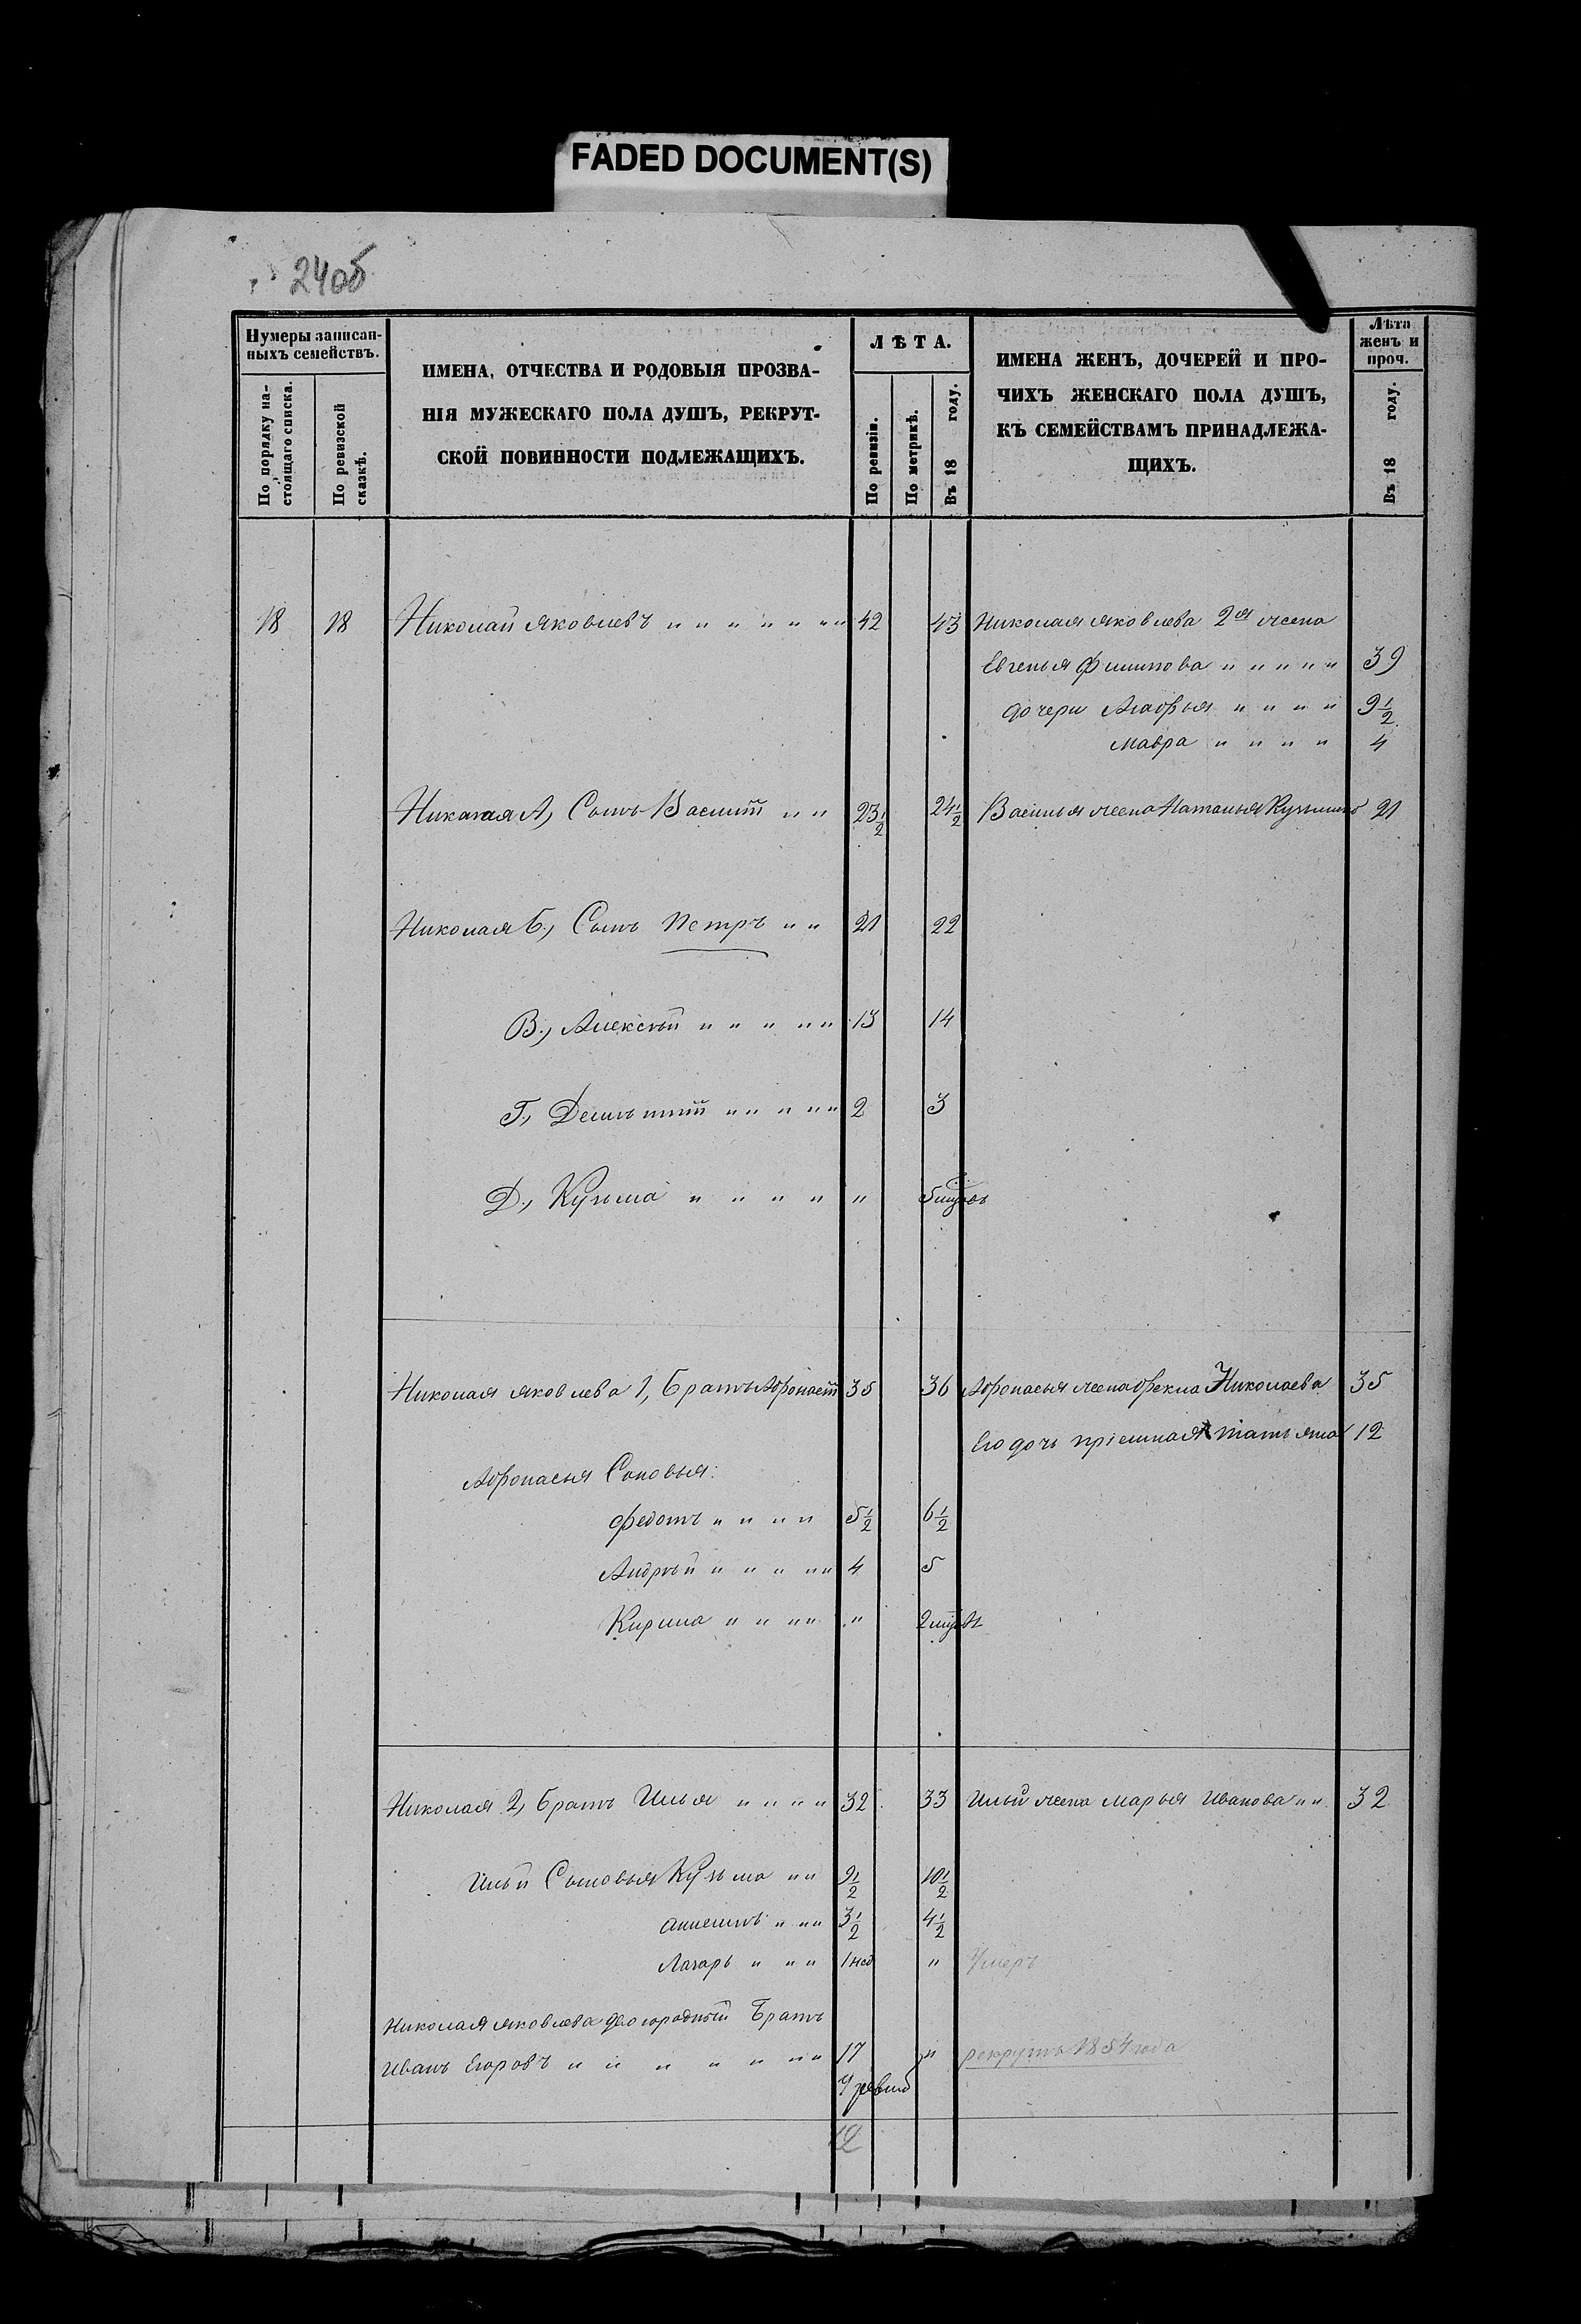 FADED DOCUMENT(S)
24об
Нумеры записан-
ныхъ семействъ.
По порядку на-
стоящаго списка.
По ревизской
сказкѣ.
ИМЕНА, ОТЧЕСТВА И РОДОВЫЯ ПРОЗВА-
НІЯ МУЖЕСКАГО ПОЛА ДУШЪ, РЕКРУТ-
СКОЙ ПОВИННОСТИ ПОДЛЕЖАЩИХЪ.
ЛѢТА.
По ревизіи.
По метрикѣ.
Въ 18 году.
ИМЕНА ЖЕНЪ, ДОЧЕРЕЙ И ПРО-
ЧИХЪ ЖЕНСКАГО ПОЛА ДУШЪ,
КЪ СЕМЕЙСТВАМЪ ПРИНАДЛЕЖА-
ЩИХЪ.
Лѣта
женъ и
проч.
Въ 18 году.
18 18 Николай Яковлевъ " " " " " " " 42 43 Николая Яковлева 2я жена
Евгенья Филипова " " " " " 39
дочери Агафья " " " " 9 1/2
Мавра " " " " 4
Николая А, Сынъ Василій " " 23 1/2 24 1/2 Василья жена Наталья Кузмина 21
Николая Б, Сынъ Петръ " " 21 22
В, Алексѣй " " " " " 13 14
Г, " " " " " 2 3
Д, Кузьма " " " " "
Николая Яковлева 1, Братъ Афонасій 35 36 Афонасья жена Фекла Николаева 35
Его дочь пріемная Татьяна 12
Афонасья Соновья:
Федотъ " " " " 5 1/2 6 1/2
Андрѣй " " " " " 4 5
Кирила " " " " "
Николая 2, Братъ Илья " " " " 32 33 Ильи жена Марья Иванова " " 32
Ильи Сыновья Кузьма " " 9 1/2 10 1/2
" " " 3 1/2 4 1/2
Лазарь " " " 1 нед " Умеръ
Николая Яковлева двоюродный Братъ
Иванъ Егоровъ " " " " " " " 17 " рекрутъ 1854 года
12